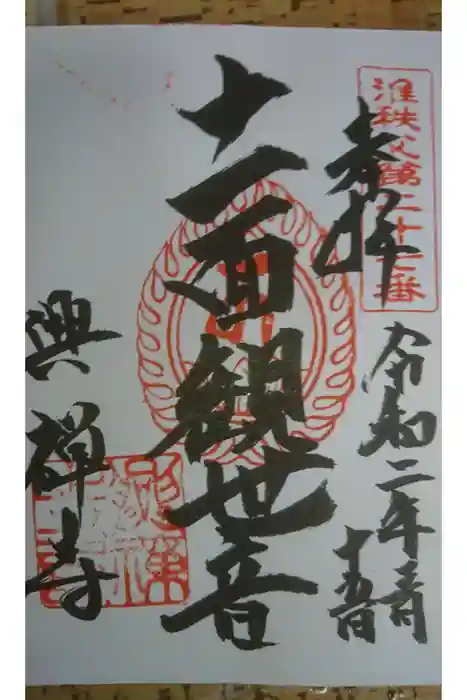 准秩父第二十七番
奉拝
令和二年三月
十五日
十一面観世音
興禅寺